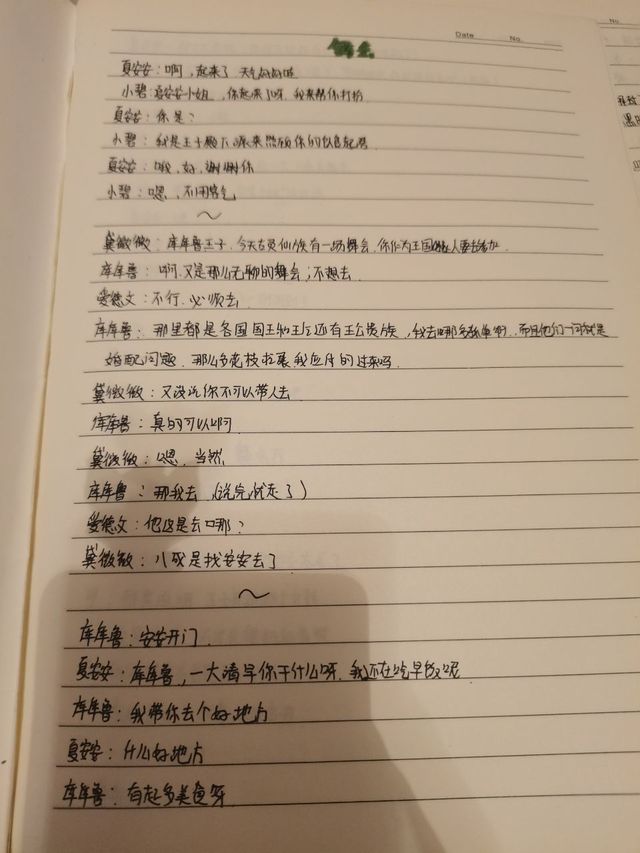 Date No.
夏安安：啊，起来了 天气好好啦
小碧：安安小姐，你起来了呀，我来帮你打扮
夏安安：你是？
小碧：我是王子殿下派来照顾你的
夏安安：哦，好，谢谢你
小碧：嗯，不用客气
～
黛薇薇：库库鲁王子，今天在灵仙族有一场舞会，你作为王国继承人要去参加
库库鲁：啊，又是那么无聊的舞会，不想去
爱德文：不行，必须去
库库鲁：那里都是各国国王和王后还有王公贵族，我去哪多孤单啊，而且他们一问就是
婚配问题，那么多老枝桠裹我应付的过来吗
黛薇薇：又没说你不可以带人去
库库鲁：真的可以啊
黛薇薇：嗯，当然
库库鲁：那我去（说完就走了）
爱德文：他这是去哪？
黛薇薇：八成是找安安去了
～
库库鲁：安安开门
夏安安：库库鲁，一大清早你干什么呀，我还在吃早饭呢
库库鲁：我带你去个好地方
夏安安：什么好地方
库库鲁：有超多美食呀
No.